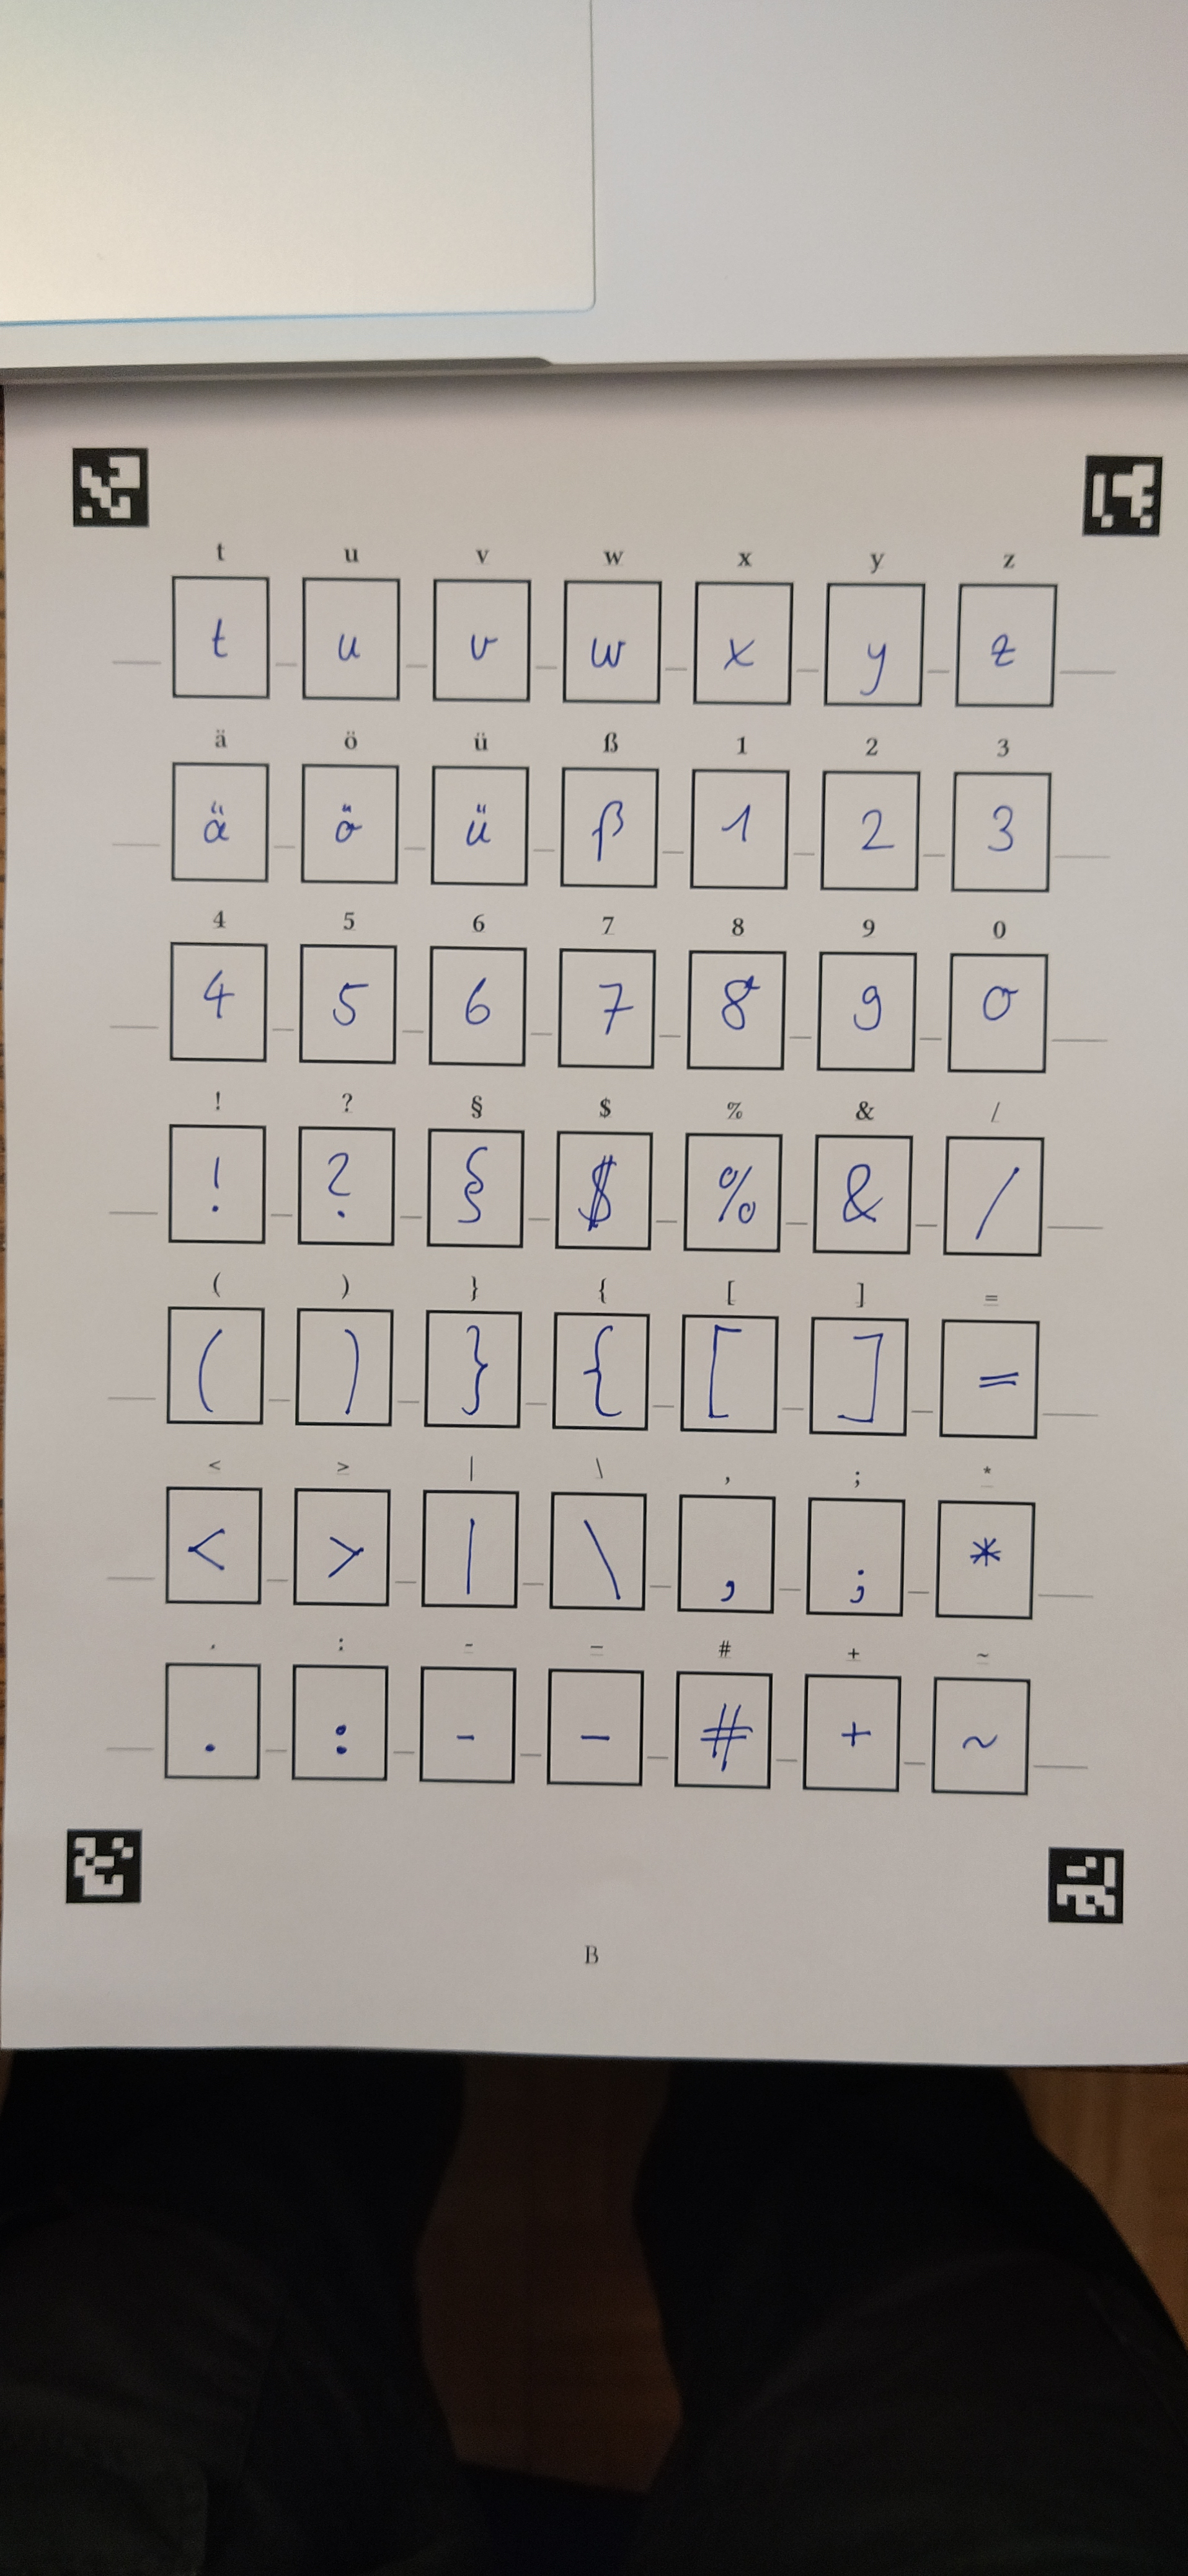 t u v w x y z
t u v w x y z
ä ö ü ß 1 2 3
ä ö ü ß 1 2 3
4 5 6 7 8 9 0
4 5 6 7 8 9 0
! ? § $ % & /
! ? § $ % & /
( ) } { [ ] =
( ) } { [ ] =
< > | \ , ; *
< > | \ , ; *
. : - – # + ~
. : - – # + ~
B